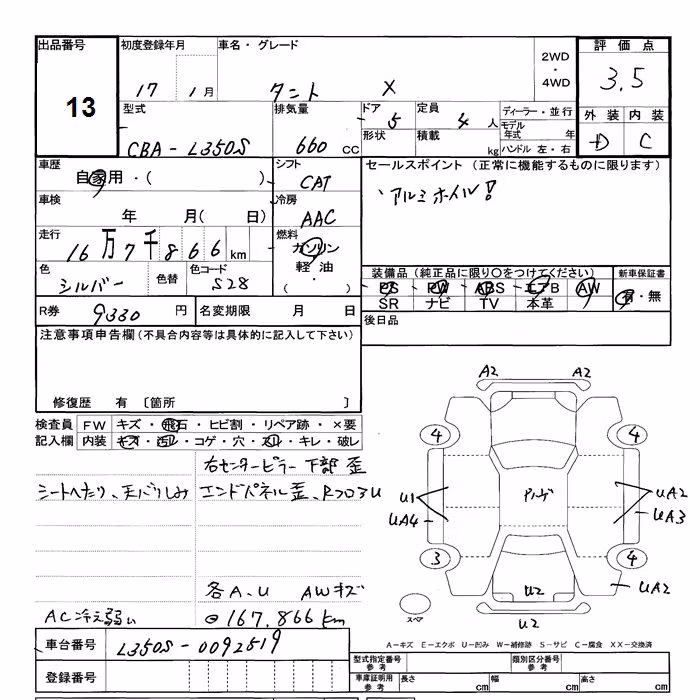 出品番号 初度登録年月 車名・グレード 2WD・4WD 評価点
13 17 1月 タント X 3.5
型式 排気量 ドア 5 定員 4人 ディーラー・並行 外装 内装
CBA-L350S 660cc 形状 積載 kg モデル年式 年 ハンドル 左・右 D C
車歴 自家用・( ) シフト CAT セールスポイント (正常に機能するものに限ります)
車検 年 月( 日) 冷房 AAC アルミホイル!
走行 16万7千866km 燃料 ガソリン 軽油 ( )
色 シルバー 色替 色コード S28 装備品(純正品に限り○をつけてください) 新車保証書
PS PW ABS エアB AW 有・無
SR ナビ TV 本革
R券 9330円 名変期限 月 日 後日品
注意事項申告欄(不具合内容等は具体的に記入して下さい)
修復歴 有 〔箇所 〕
検査員 FW キズ・飛石・ヒビ割・リペア跡・×要
記入欄 内装 キズ・汚レ・コゲ・穴・スレ・キレ・破レ
右センターピラー下部歪
シートへたり、天バリしみ エンドパネル歪、RフロアU
各A、U AWキズ
AC冷え弱い 167,866km
車台番号 L350S-0092519
登録番号
A2 A2
4 4
U1 UA2
UA4 UA3
3 4
UA2
U2
スペア U2
A-キズ E-エクボ U-凹み W-補修跡 S-サビ C-腐食 XX-交換済
型式指定番号 参考 類別区分番号 参考
車庫証明用 参考 長さ cm 幅 cm 高さ cm